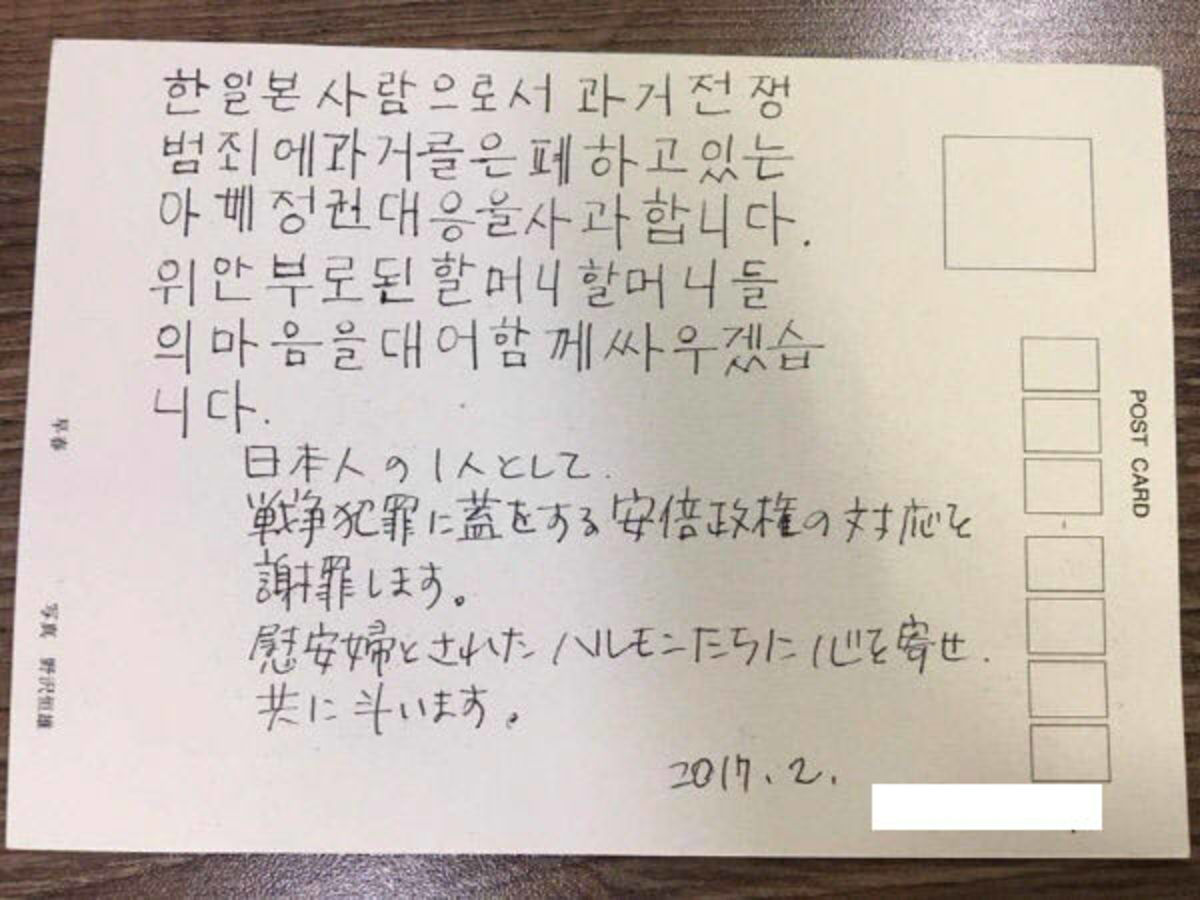 한일본사람으로서 과거전쟁
범죄에과거를은폐하고있는
아베정권대응을사과합니다.
위안부로된할머니할머니들
의마음을대어함께싸우겠습
니다.
日本人の1人として.
戦争犯罪に蓋をする安倍政権の対応を
謝罪します。
慰安婦とされたハルモニたちに心を寄せ.
共に斗います。
2017.2.
POST CARD
早春
写真 野沢恒雄